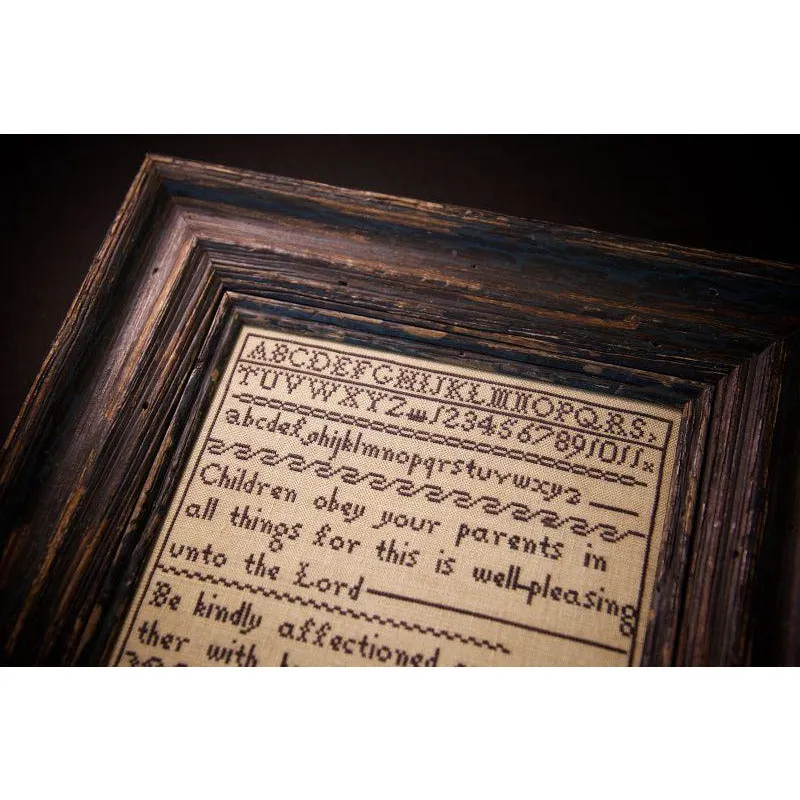 ABCDEFGHIJKLMNOPQRS,
TUVWXYZ 1234567891011x
abcdefghijklmnopqrstuvwxyz
Children obey your parents in
all things for this is well-pleasing
unto the Lord
Be kindly affectioned
ther with